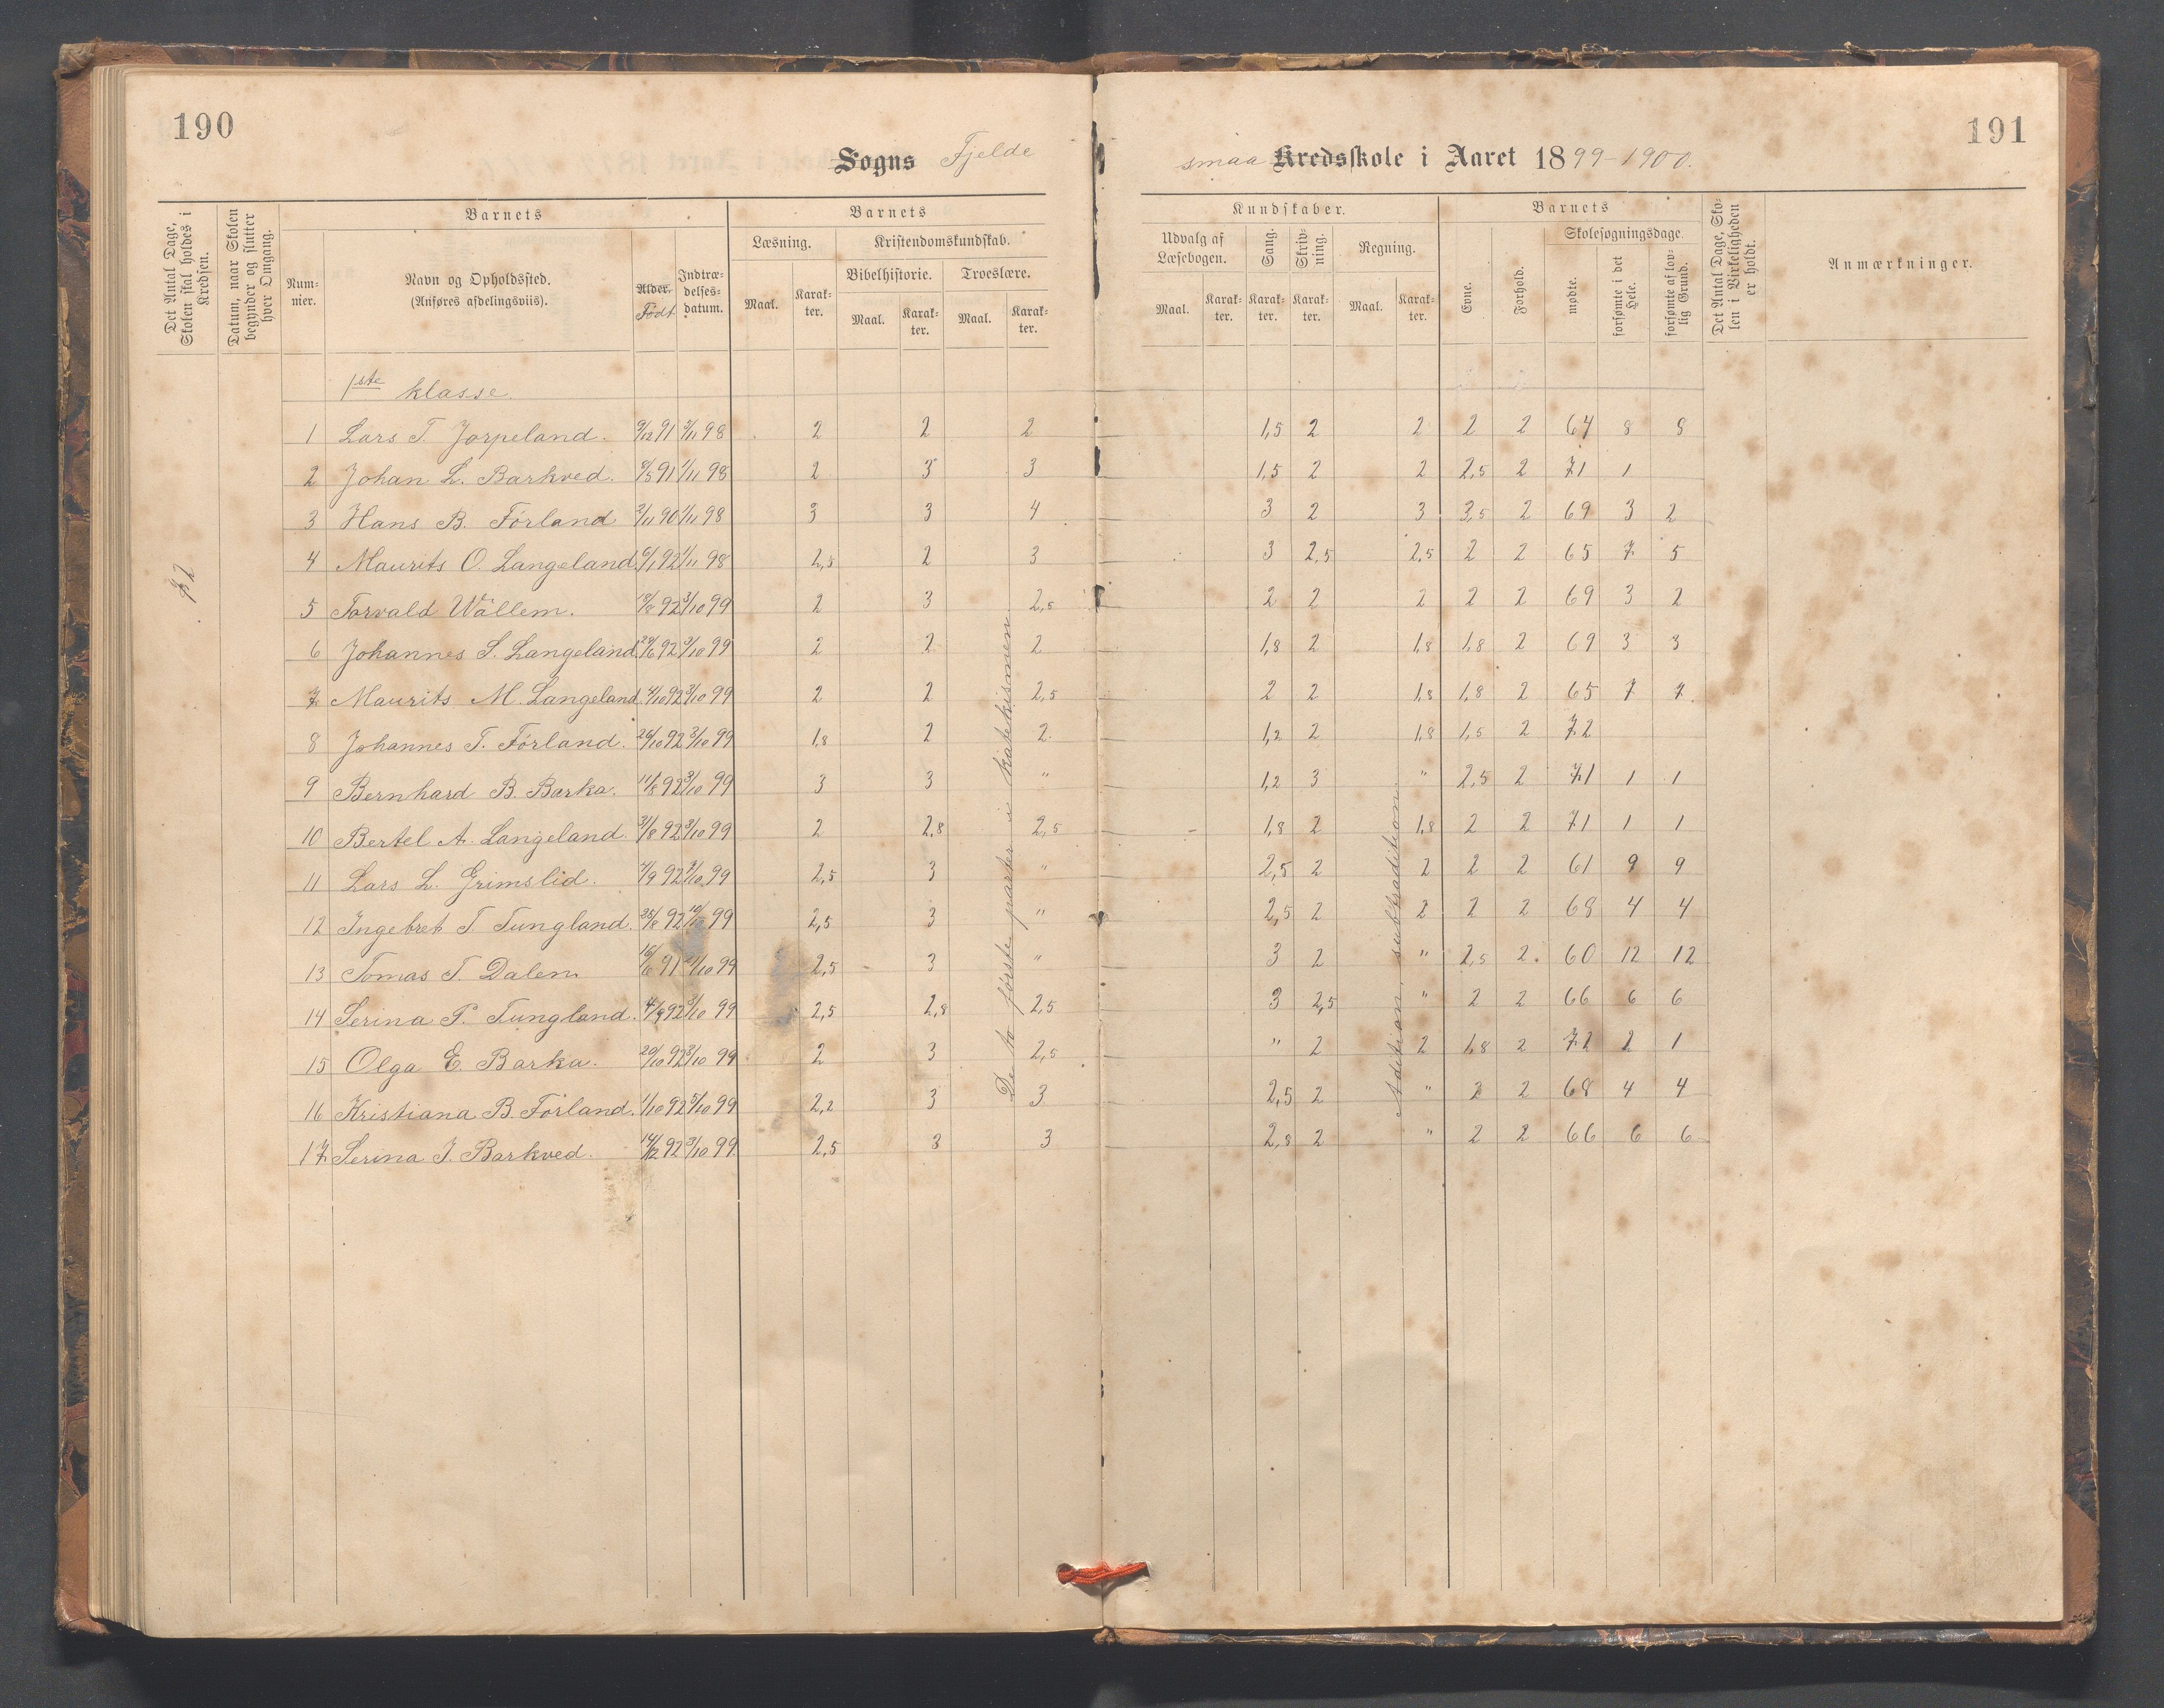 190
Sogns Fjelde
Det Antal Dage, Skolen skal holdes i Kredsen.
Datum, naar Skolen begynder og slutter hver Omgang.
Barnets
Num-
mer.
Navn og Opholdssted.
(Anføres afdelingsviis).
Alder.
Født
Indtræ-
delses-
datum.
Barnets
Læsning.
Maal.
Karak-
ter.
Kristendomskundskab.
Bibelhistorie.
Troeslære.
Maal.
Karak-
ter.
Maal.
Karak-
ter.
1ste klasse.
72
1 Lars T. Jørpeland. 9/12 91 3/11 98 2 2 2
2 Johan L. Barkved. 8/5 91 1/11 98 2 3 3
3 Hans B. Förland 2/11 90 1/11 98 3 3 4
4 Maurits O. Langeland 6/1 92 1/11 98 2,5 2 3
5 Torvald Wållem. 18/8 92 3/10 99 2 3 2,5
6 Johannes S. Langeland 29/6 92 3/10 99 2 2 2
7 Maurits M. Langeland 4/10 92 3/10 99 2 2 2,5
8 Johannes T. Förland. 26/10 92 3/10 99 1,8 2 2
9 Bernhard B. Barka. 11/8 92 3/10 99 3 3 "
10 Bertel A. Langeland. 31/8 92 3/10 99 2 2,8 2,5
11 Lars L. Grimslid. 7/9 92 9/10 99 2,5 3 "
12 Ingebret T Tungland. 25/8 92 10/10 99 2,5 3 "
13 Tomas T. Dalen 16/6 91 /10 99 2,5 3 "
14 Serina P. Tungland. 4/9 92 3/10 99 2,5 2,8 2,5
15 Olga E. Barka. 20/10 92 3/10 99 2 3 2,5
16 Kristiana B. Förland. 1/10 92 5/10 99 2,2 3 3
17 Serina J. Barkved. 14/12 92 3/10 99. 2,5 3 3
De to første parter i katekismen
191
smaa Kredsskole i Aaret 1899-1900.
Kundskaber.
Udvalg af
Læsebogen.
Maal.
Karak-
ter.
Sang.
Karak-
ter.
Skriv-
ning.
Karak-
ter.
Regning.
Maal.
Karak-
ter.
Barnets
Evne.
Forhold.
Skolesøgningsdage.
mødte.
forsømte i det Hele.
forsømte af lov-
lig Grund.
Det Antal Dage, Sko-
len i Virkeligheden
er holdt.
Anmærkninger.
1,5 2 2 2 2 64 8 8
1,5 2 2 2,5 2 71 1
3 2 3 3,5 2 69 3 2
3 2,5 2,5 2 2 65 7 5
2 2 2 2 2 69 3 2
1,8 2 1,8 1,8 2 69 3 3
2 2 1,8 1,8 2 65 7 7
1,2 2 1,8 1,5 2 72
1,2 3 " 2,5 2 71 1 1
1,8 2 1,8 2 2 71 1 1
2,5 2 2 2 2 61 9 9
2,5 2 2 2 2 68 4 4
3 2 " 2,5 2 60 12 12
3 2,5 " 2 2 66 6 6
" 2 2 1,8 2 72 2 1
2,5 2 " 2 2 68 4 4
2,8 2 " 2 2 66 6 6
Adition, subtradition.